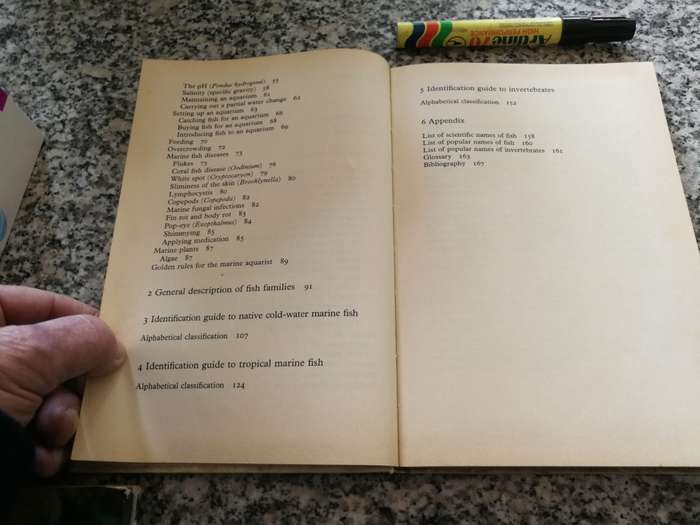 The pH (Pondus hydrogenii) 55
Salinity (specific gravity) 58
Maintaining an aquarium 61
Carrying out a partial water change 61
Setting up an aquarium 63
Catching fish for an aquarium 66
Buying fish for an aquarium 68
Introducing fish to an aquarium 69
Feeding 70
Overcrowding 72
Marine fish diseases 73
Flukes 75
Coral fish disease (Oodinium) 76
White spot (Cryptocaryon) 79
Sliminess of the skin (Brooklynella) 80
Lymphocystis 80
Copepods (Copepoda) 82
Marine fungal infections 82
Fin rot and body rot 83
Pop-eye (Exopthalmus) 84
Shimmying 85
Applying medication 85
Marine plants 87
Algae 87
Golden rules for the marine aquarist 89
2 General description of fish families 91
3 Identification guide to native cold-water marine fish
Alphabetical classification 107
4 Identification guide to tropical marine fish
Alphabetical classification 124
5 Identification guide to invertebrates
Alphabetical classification 152
6 Appendix
List of scientific names of fish 158
List of popular names of fish 160
List of popular names of invertebrates 161
Glossary 163
Bibliography 167
Artline 70
HIGH PERFORMANCE